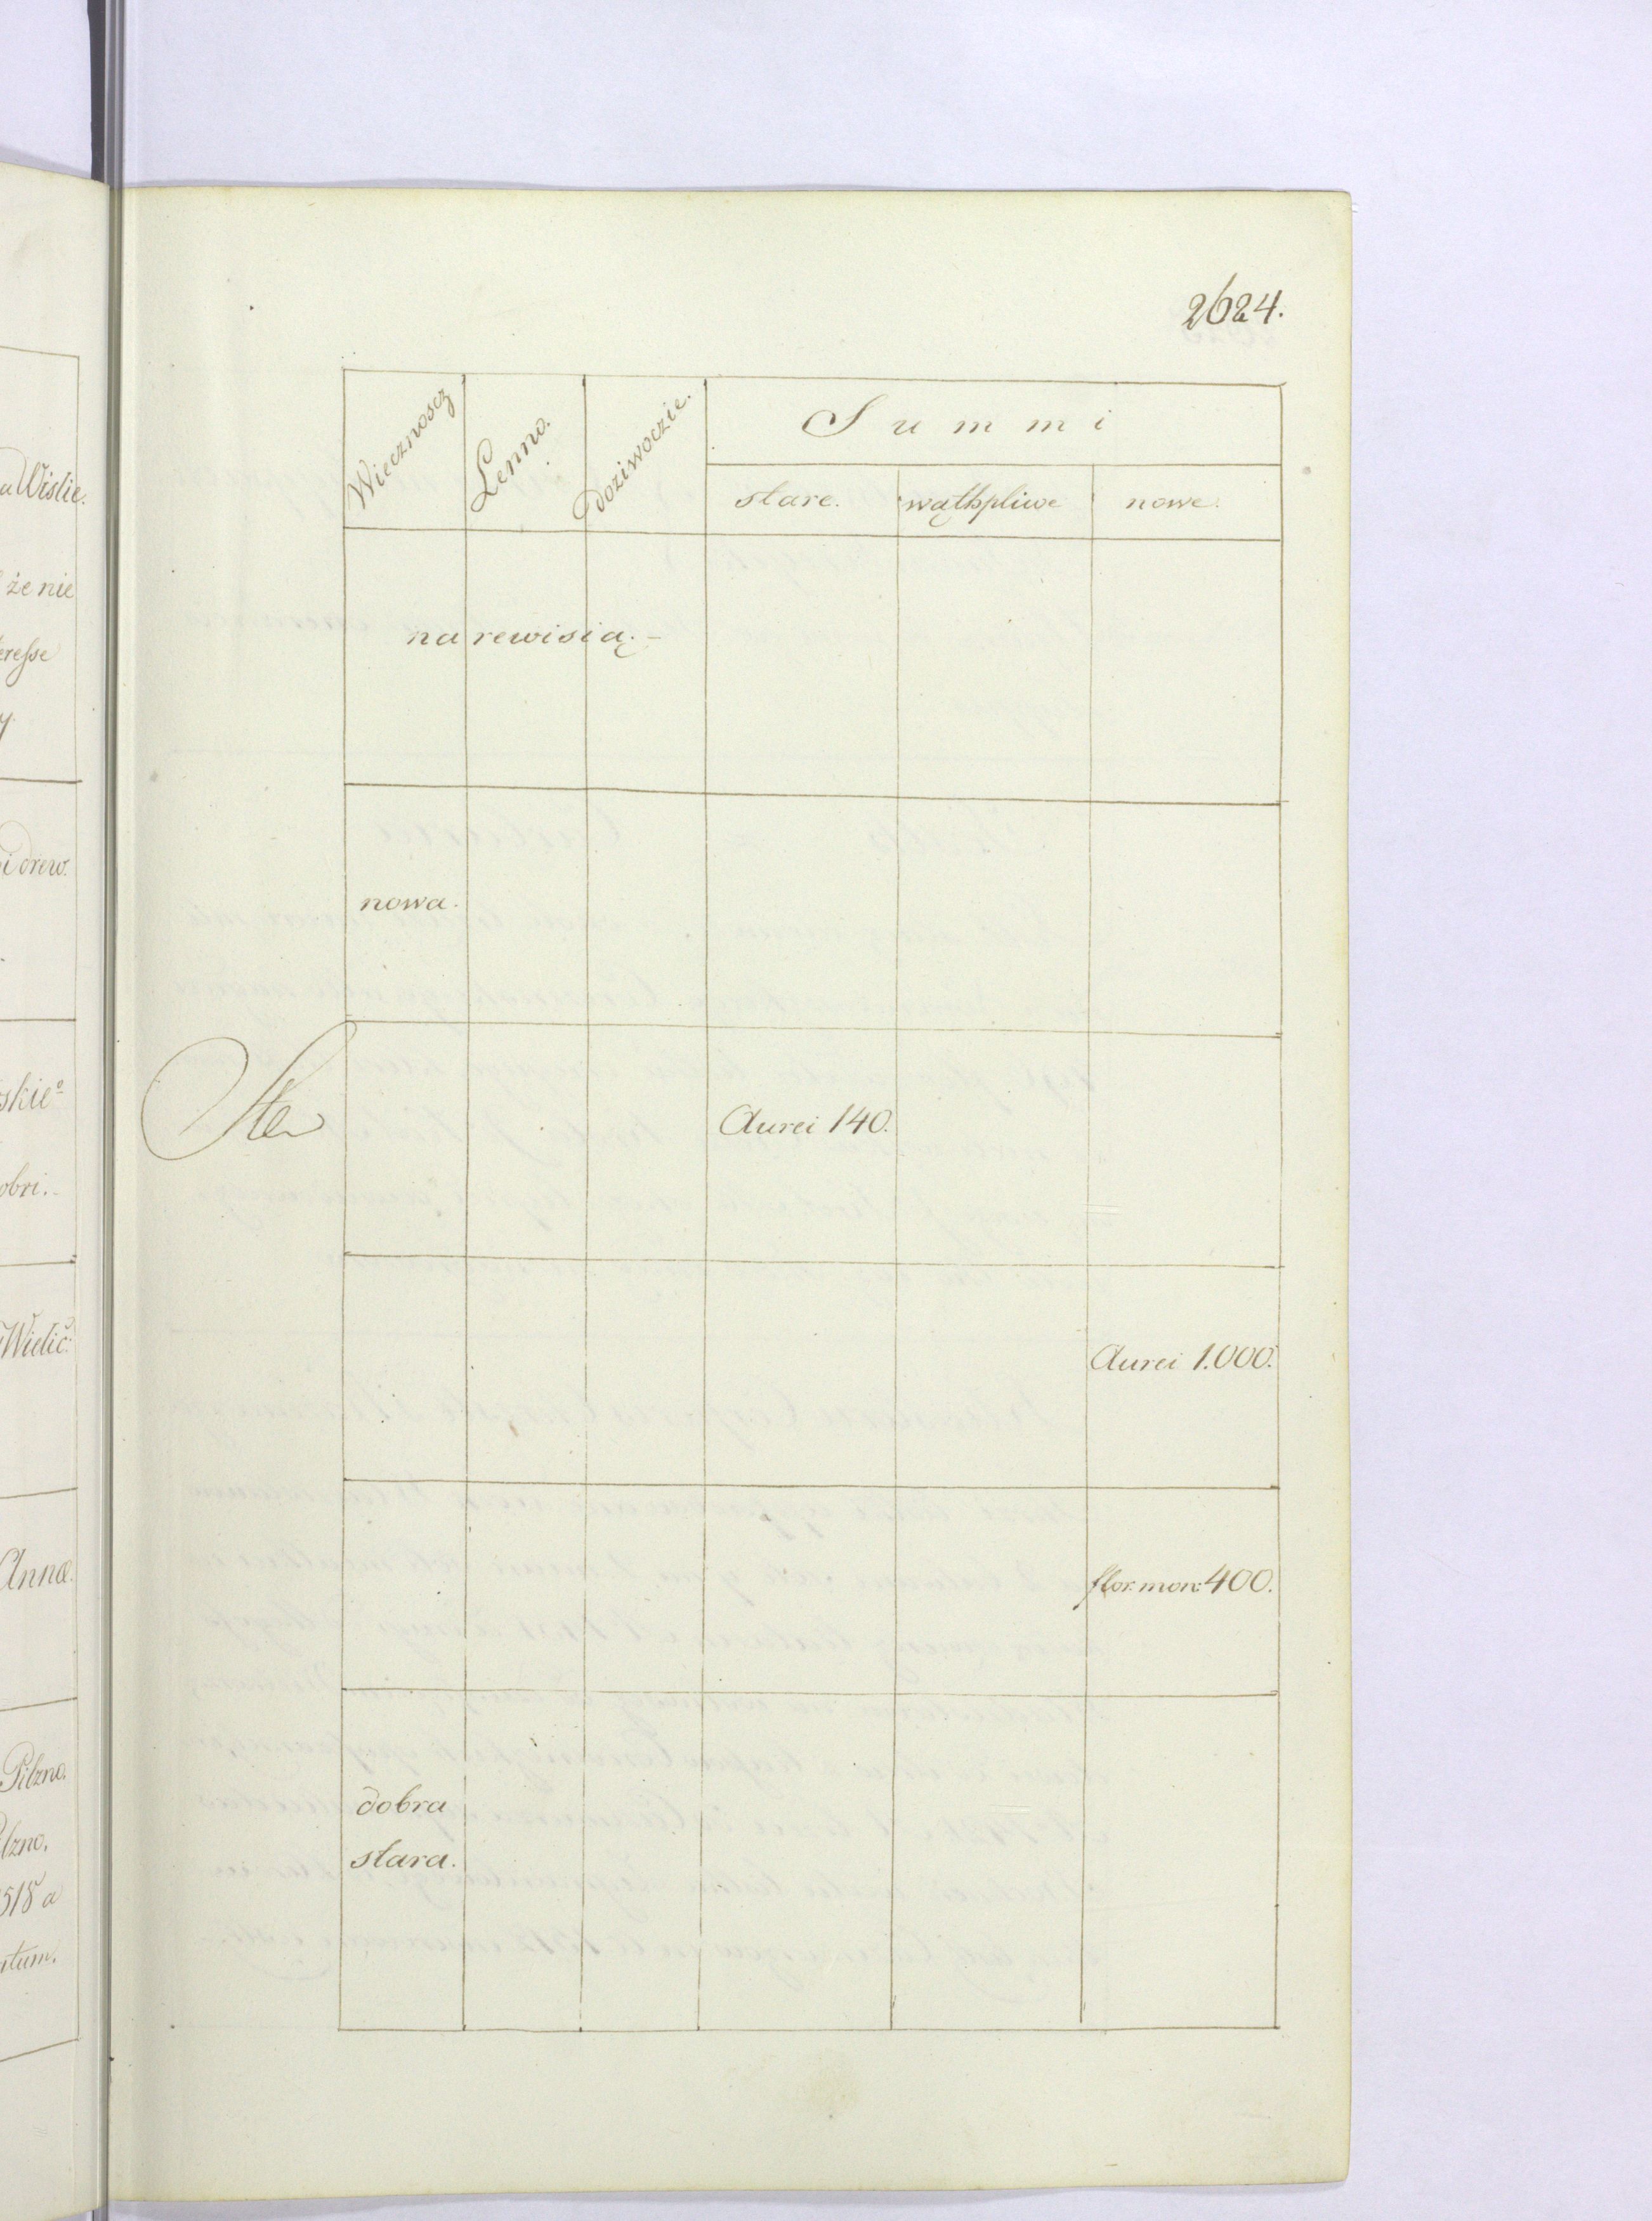 2624.
Wiecznoscz
Lenno.
Doziwoczie.
Summi
stare.
wąthpliwe
nowe.
na rewisią. -
nowa.
Aurei 140.
Aurei 1.000.
flor: mon: 400.
dobra
stara.
u Wislie.
że nie
eresse
y
i drew.
skie°
obri. -
Wielič:
Annæ.
Pilzno.
lzno.
518 a
itum.